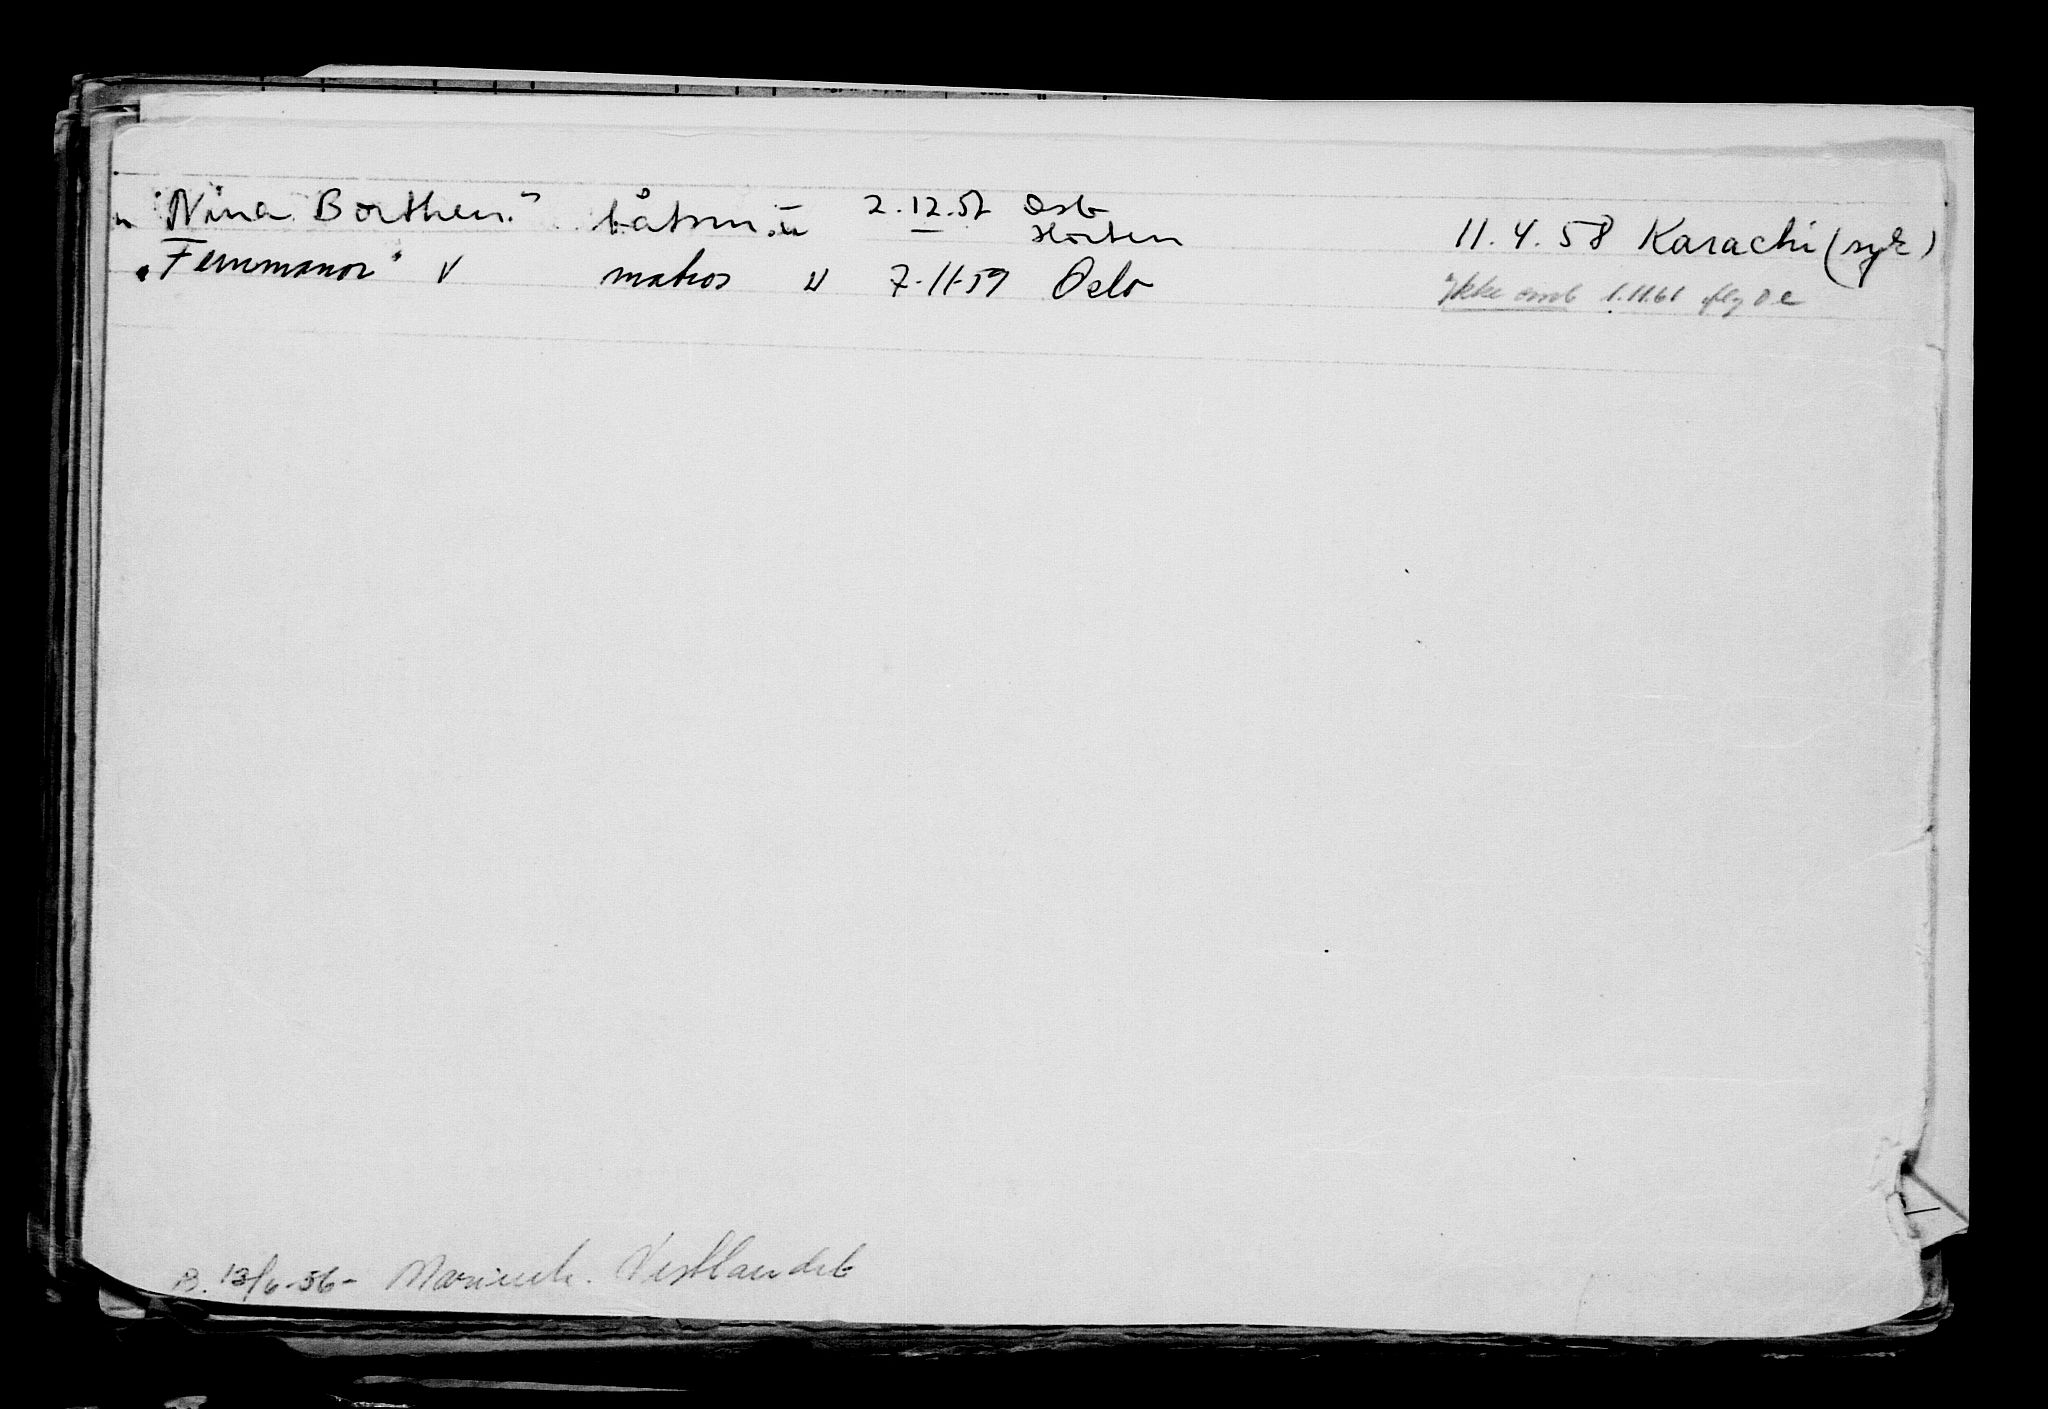 " "Nina Borthen." båtsm. u 2.12.57 Oslo Horten 11.4.58 Karachi (syk)
"Fernmanor" v matros u 7-11-59 Oslo Ikke omb 1.11.61
B. 13/6-56- Marinek. Vestlandet